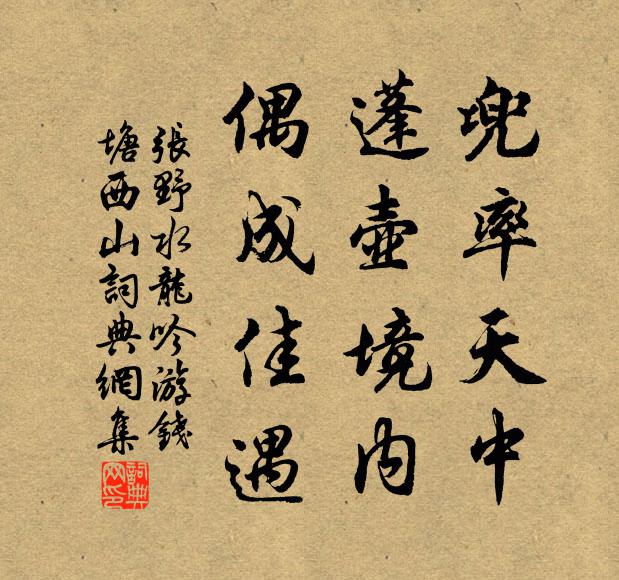 兜率天中
蓬壺境内
偶成佳遇
張野水龍吟游錢
塘西山詞典網集
詞典网印